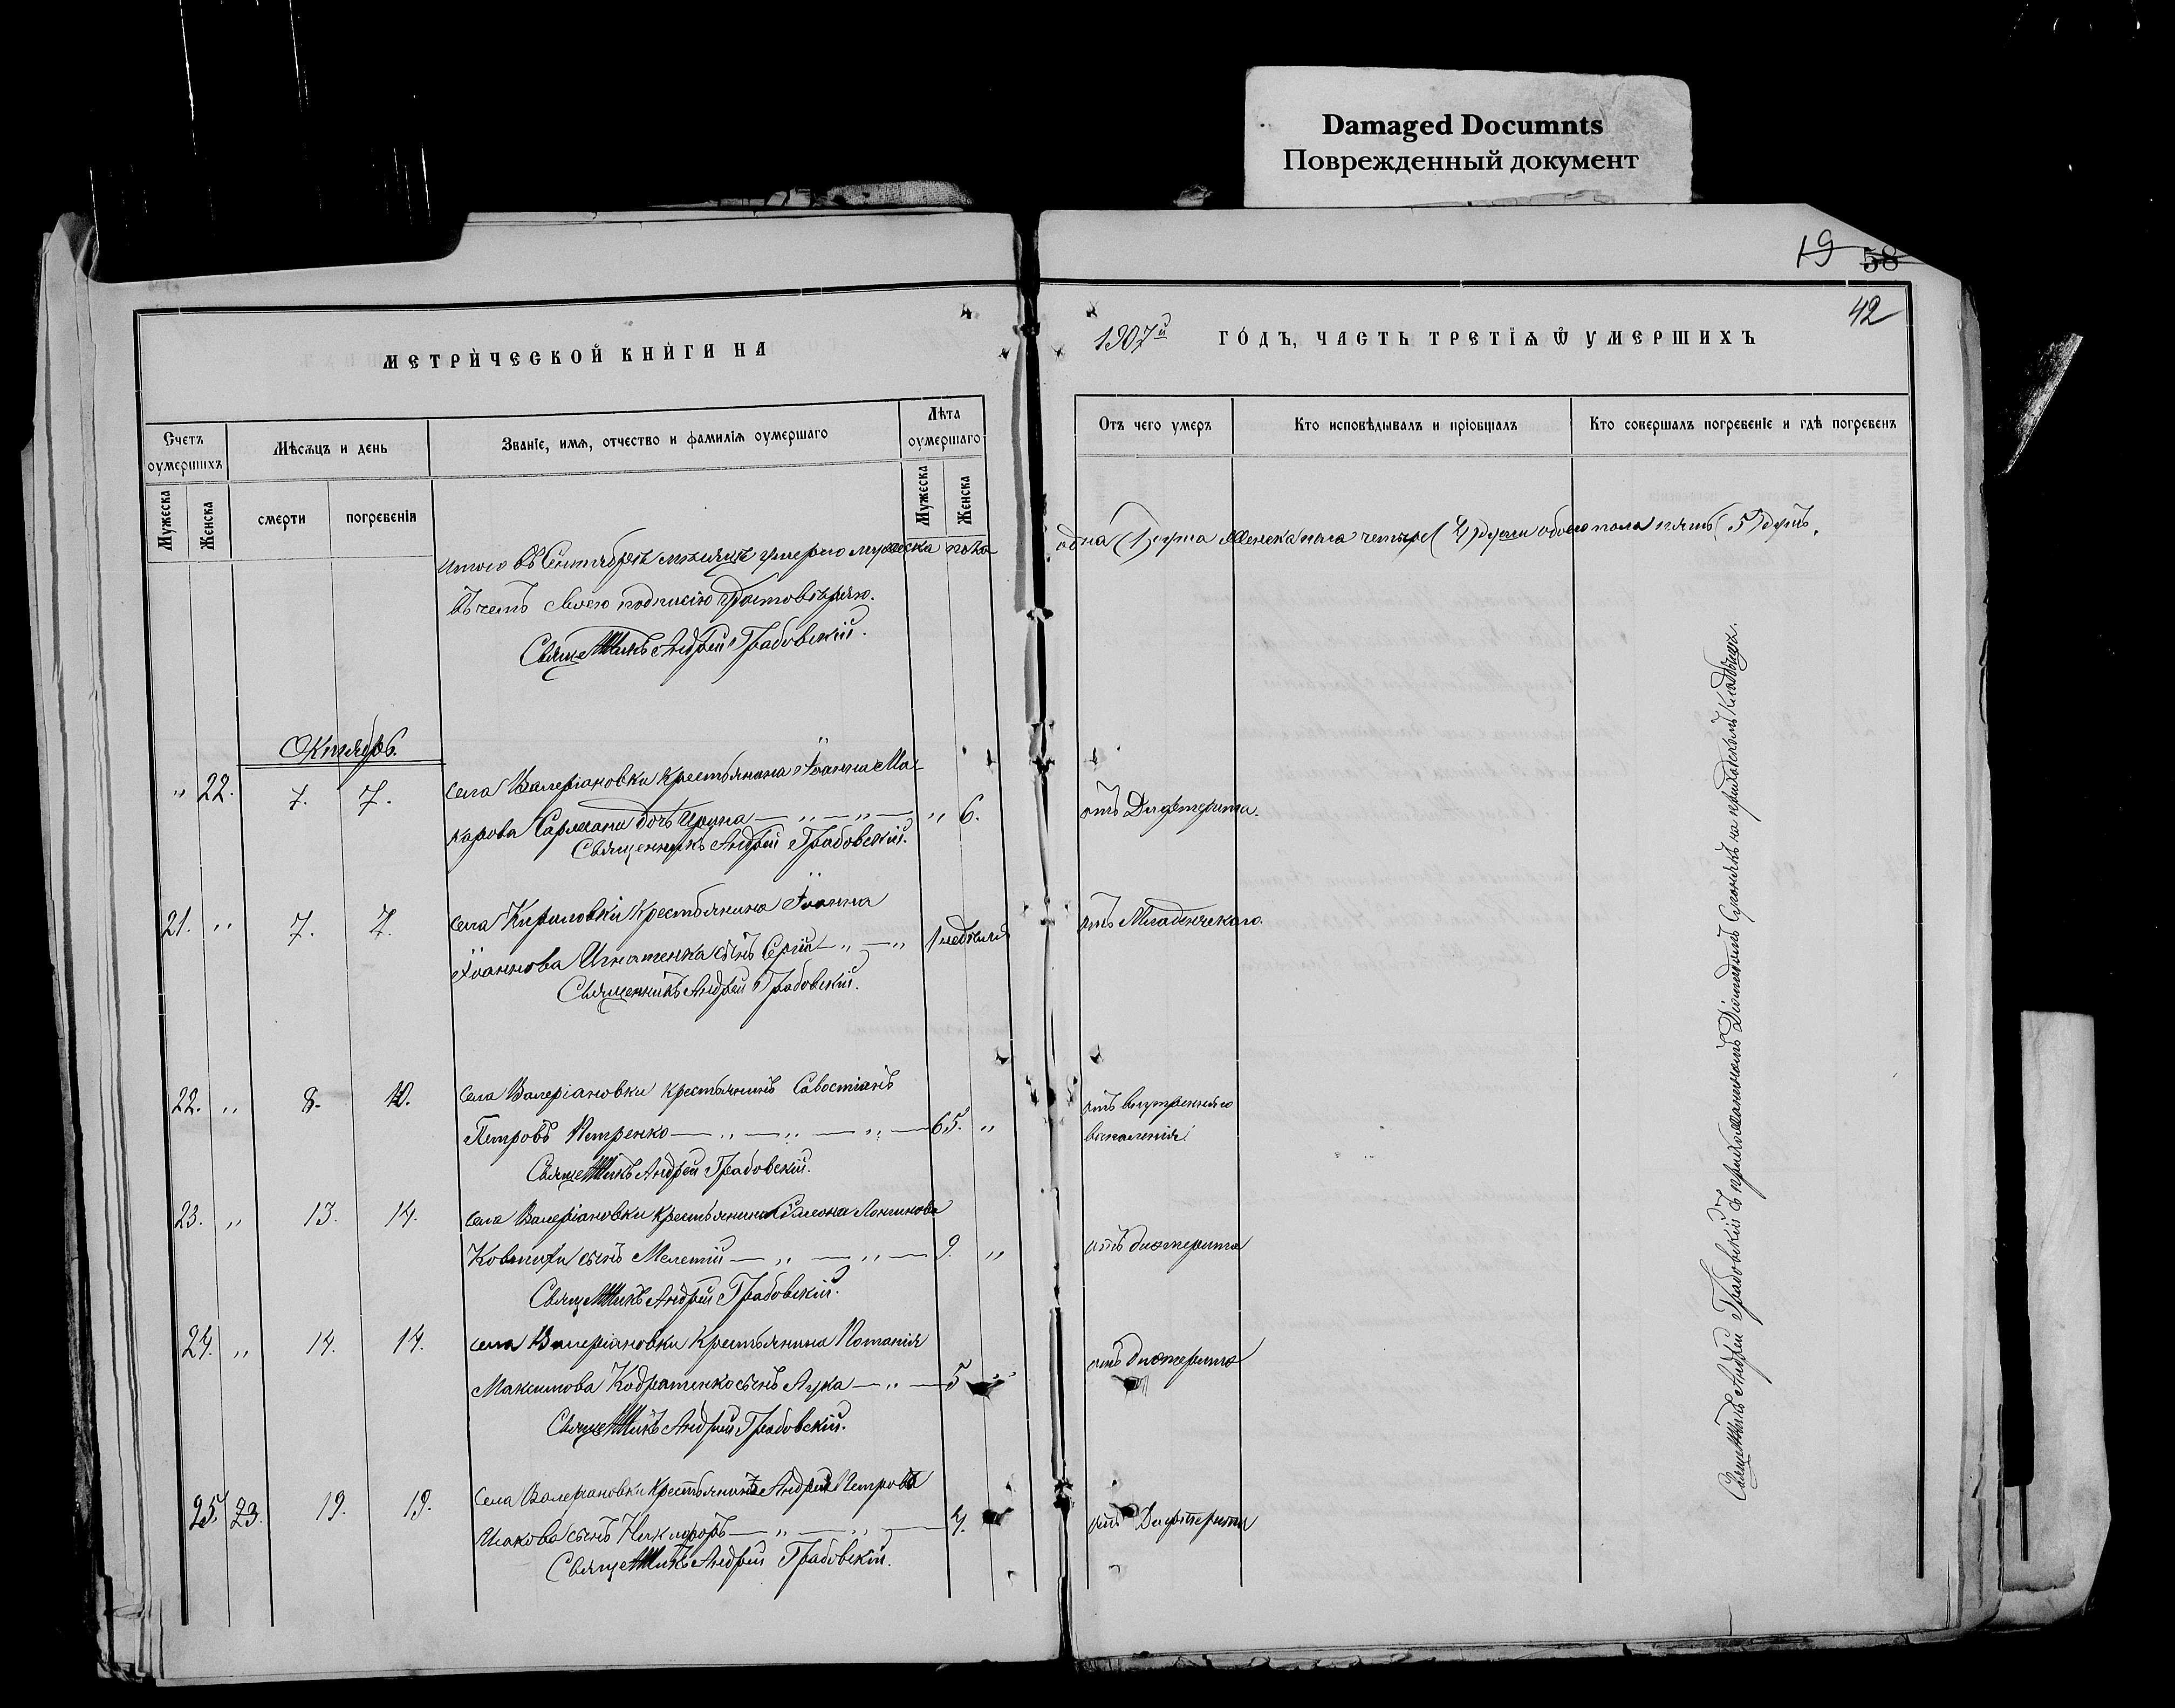 Damaged Documnts
Поврежденный документ
19 58
42
МЕТРИЧЕСКОЙ КНИГИ НА
1907й ГОДЪ, ЧАСТЬ ТРЕТІЯ Ѿ УМЕРШИХЪ
Счетъ оумершихъ
Мѣсяцъ и день
Званіе, имя, отчество и фамилія оумершаго
Лѣта оумершаго
Мужеска
Женска
смерти
погребенія
Мужеска
Женска
Отъ чего умеръ
Кто исповѣдывалъ и пріобщалъ
Кто совершалъ погребеніе и гдѣ погребенъ
Итого въ Сентябрѣ мѣсяцѣ умерло мужеска пола одна (1) душа Женска пола четыре (4) души обоего пола пять (5) душъ.
Въ чемъ своею подписью удостовѣряю.
Священникъ Андрей Грабовскій.
Октябрь.
" 22. 7. 7. села Валеріановки крестьянина Іоанна Ма-
карова Сармана дочь Ирина — " — " — " 6. отъ Дифтерита.
Священникъ Андрей Грабовскій.
21. " 7. 7. села Кириловки крестьянина Іоанна
Іоаннова Игнатенка сынъ Сергій — " — " 1 недѣля отъ Младенческаго.
Священникъ Андрей Грабовскій.
22. " 8. 10. села Валеріановки крестьянинъ Савостіанъ
Петровъ Петренко — " — " — " — 65. " отъ внутренняго
воспаленія.
Священникъ Андрей Грабовскій.
23. " 13. 14. села Валеріановки крестьянина Симеона Логинова
сынъ Мелетій — " — " — 9. " отъ дифтерита
Священникъ Андрей Грабовскій.
24. " 14. 14. села Валеріановки крестьянина Потапія
Максимова Кодратенко сынъ Лука — " — 5 отъ дифтерита
Священникъ Андрей Грабовскій.
25. 23. 19. 19. Села Валеріановки крестьянина Андрея Петрова
Исакова сынъ Никифоръ — " — " — 4. отъ Дифтерита
Священникъ Андрей Грабовскій.
Священникъ Андрей Грабовскій съ псаломщикомъ на приходскомъ Кладбищѣ.